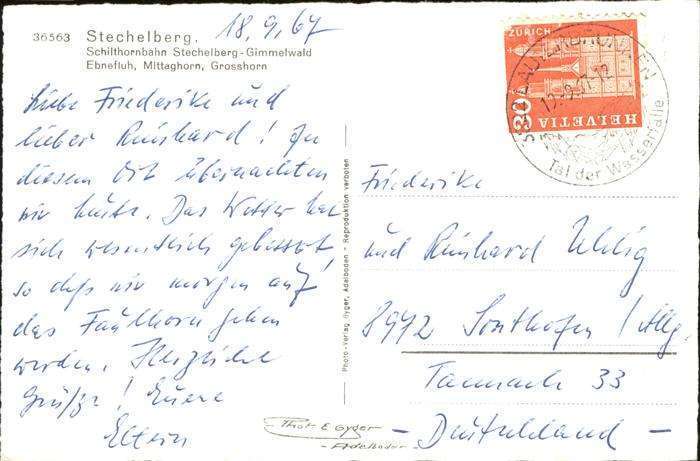 18.9.67
36563 Stechelberg,
Schilthornbahn Stechelberg-Gimmelwald
Ebnefluh, Mittaghorn, Grosshorn
Liebe Friederike und
lieber Reinhard! In
diesem Ort übernachten
wir heute. Das Wetter hat
sich wesentlich gebessert,
so daß wir morgen auf
das Faulhorn gehen
werden. Herzliche
Grüße! Euere
Eltern
Photo-Verlag Gyger, Adelboden - Reproduktion verboten
Phot E Gyger
Adelboden
ZÜRICH
80
HELVETIA
LAUTERBRUNNEN
Tal der Wasserfälle
Friederike
und Reinhard Uhlig
8972 Sonthofen / Allg.
33
- Deutschland -